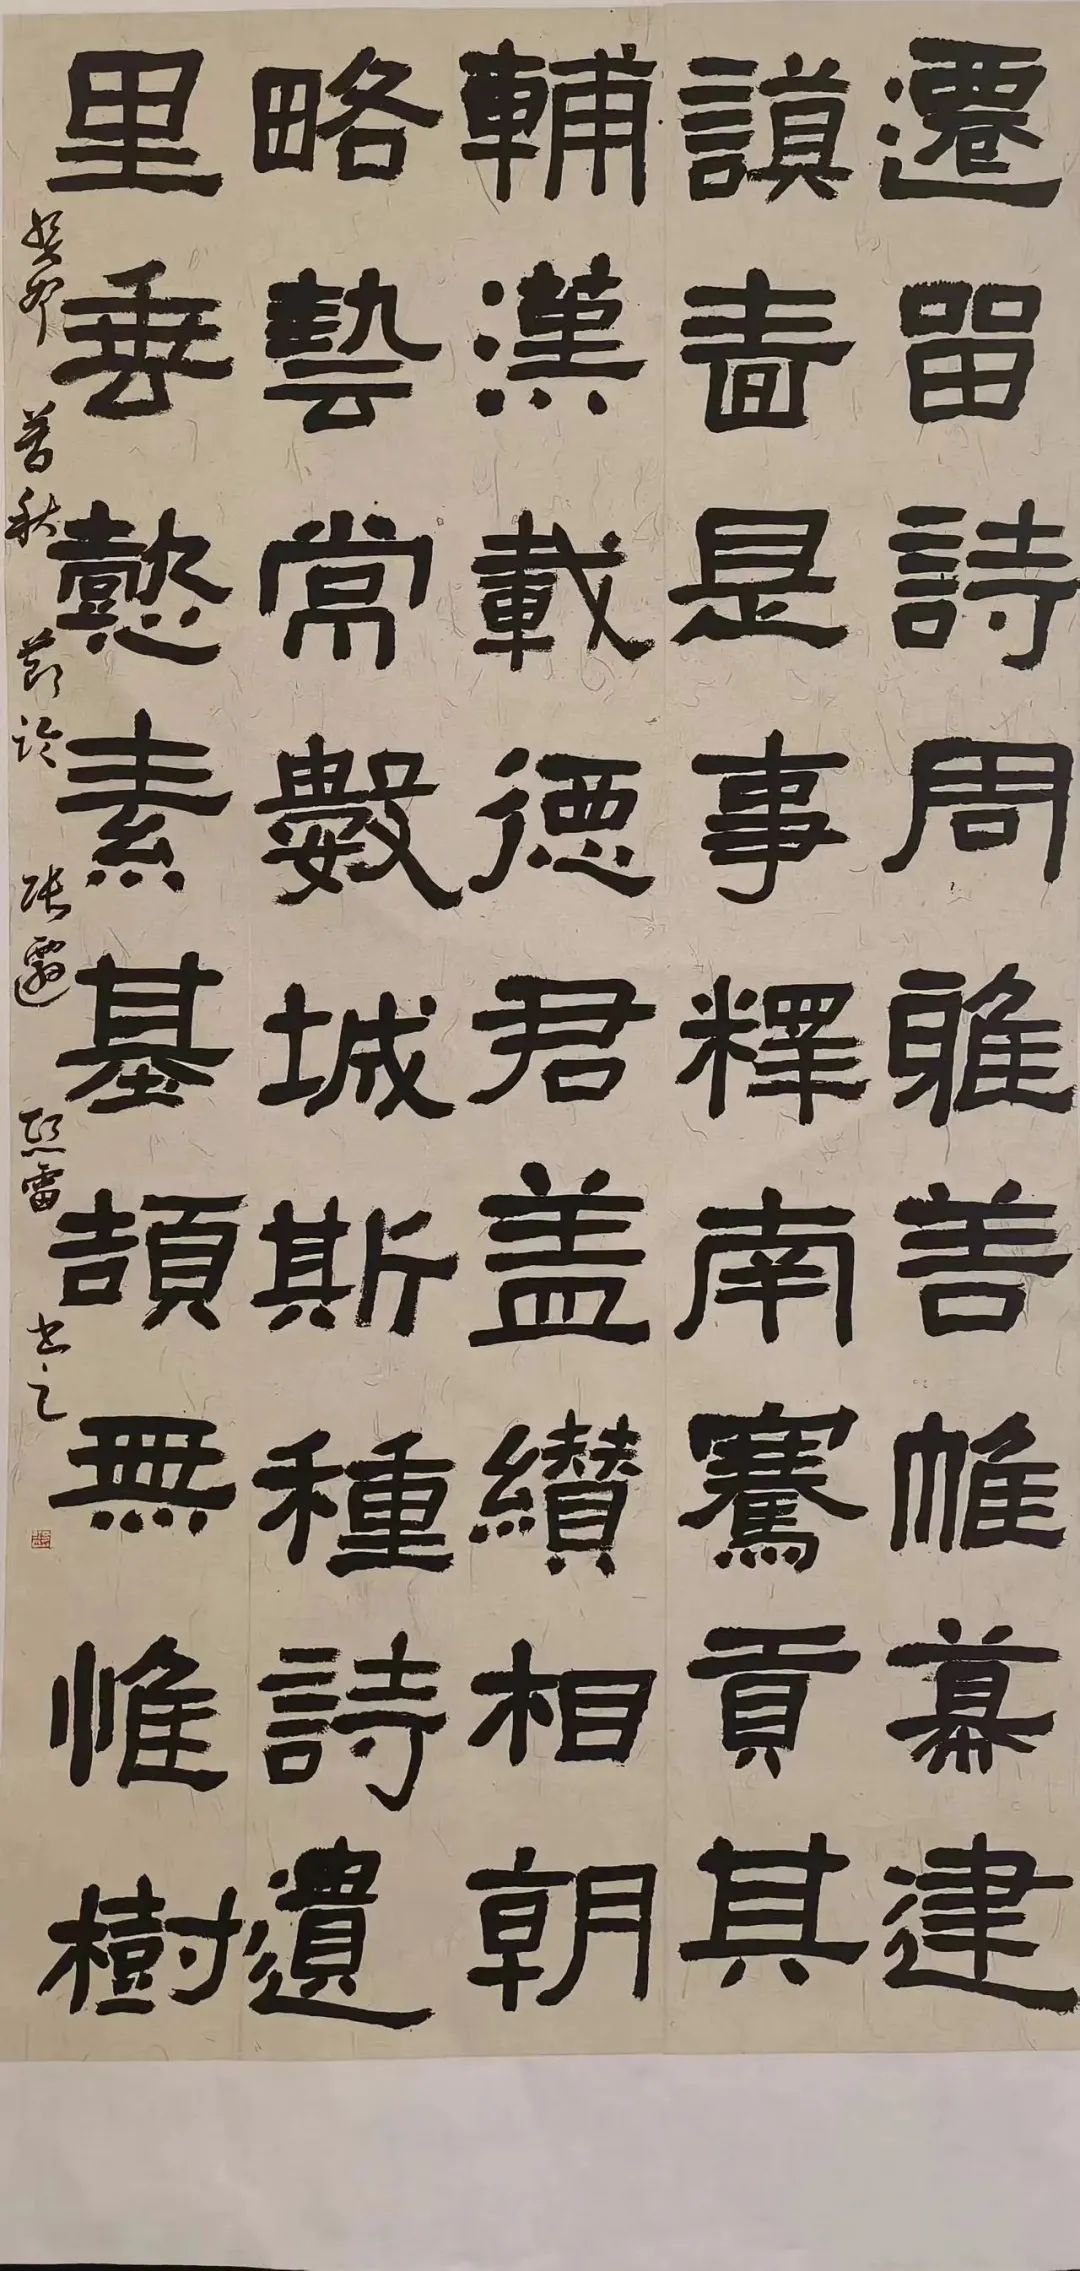 遷留詩周雎善帷幕建
謨畫是事釋南騫貢其
輔漢載德君盖纘相朝
略藝常數城斯種詩遺
里垂懿素基頡無惟樹
癸卯暮秋節臨張遷 熙雷書之